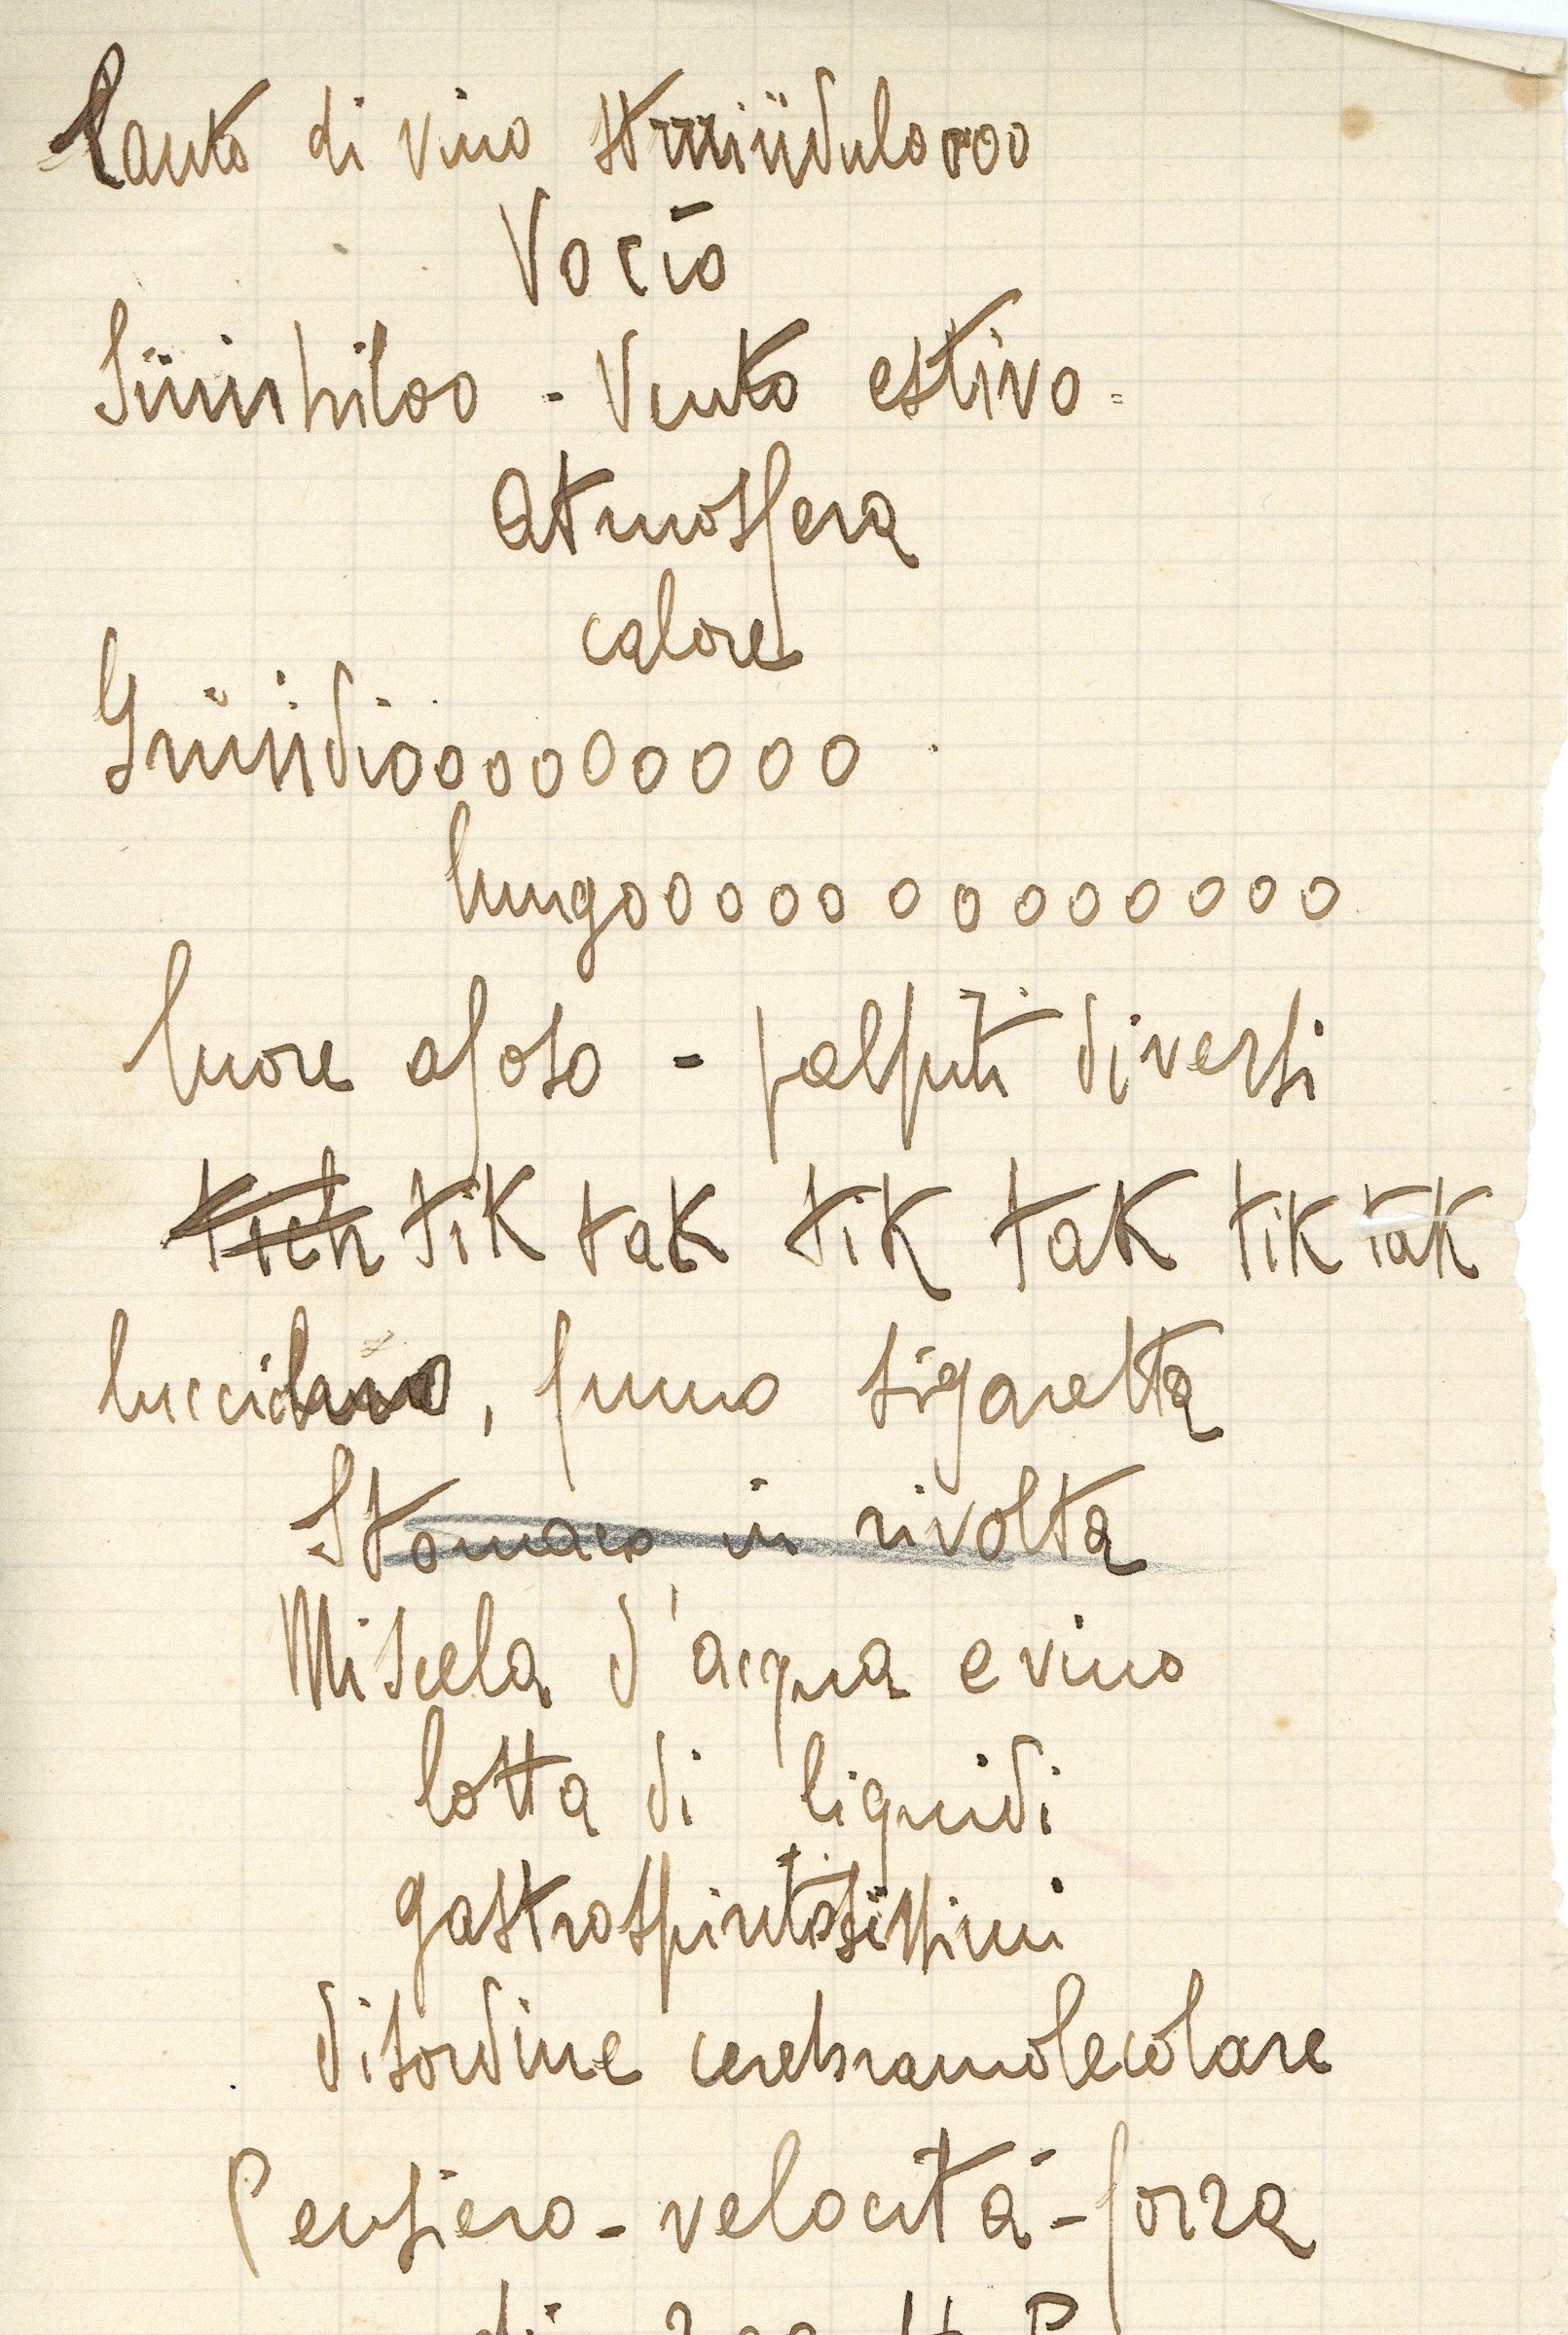 Canto di vino striiiidulo ooo
Vocío
Siiiinhiloo - Vento estivo -
Atmosfera
calore
Griiiidioooooooooo
lungoooooooooooooo
Cuore afoso - palpiti diversi
tik tak tik tak tik tak
luccichino, fumo sigaretta
Stomaco in rivolta
Miscela d'acqua e vino
lotta di liquidi
gastrospiritosissimi
disordine cerebramolecolare
Pensiero - velocitá - forza
di 200 H.P.